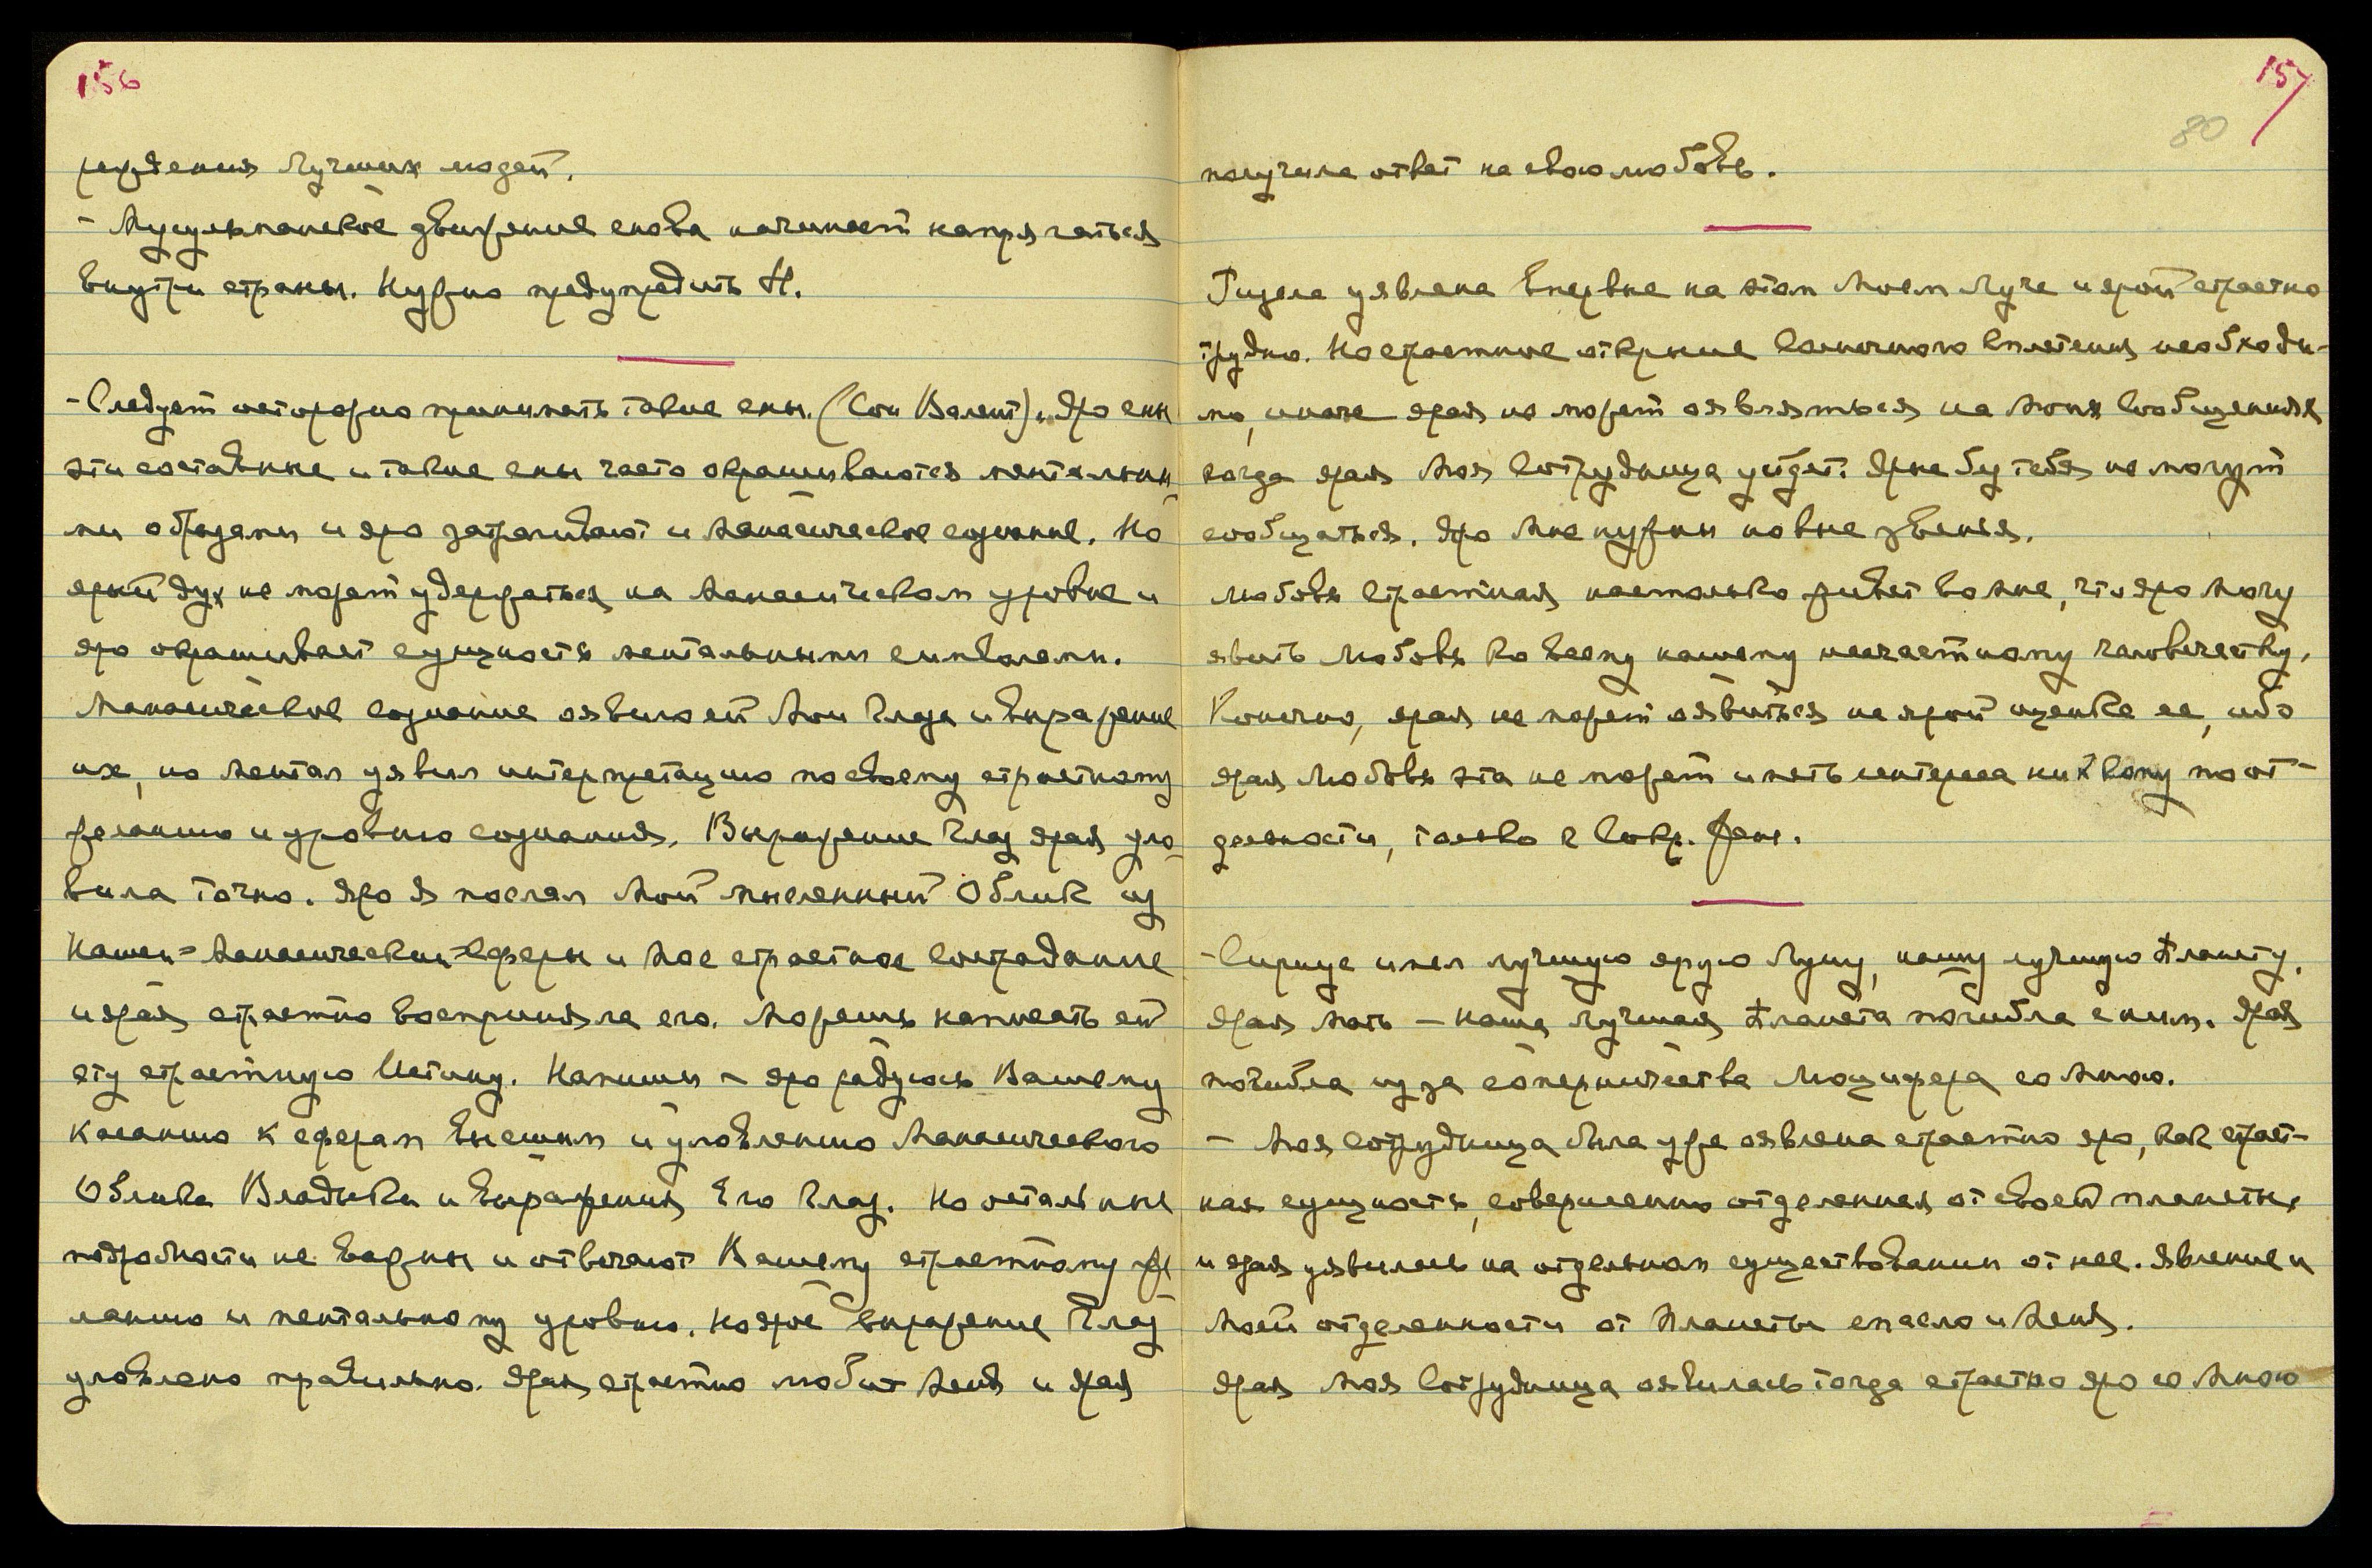 156
рождения лучших людей.
- Мусульманское движение снова начинает напрягаться
внутри страны. Нужно предупредить Н.
- Следует осторожно принимать такие сны. (Сон Валент). Яро сны
эти составные и такие сны часто окрашиваются ментальны-
ми образами и яро затрагивают и Манасическое сознание. Но
ярый дух не может удержаться на Манасическом уровне и
яро окрашивает сущность ментальными символами.
Манасическое сознание оявило ей Мои Глаза и выражение
их, но ментал уявил интерпретацию по своему страстному
желанию и уровню сознания. Выражение Глаз ярая уло-
вила точно. Яро Я послал Мой мысленный Облик из
Нашей Манасической Сферы и Мое страстное Сострадание
и ярая страстно восприняла его. Можешь написать ей
эту страстную Истину. Напиши - яро радуюсь Вашему
касанию к сферам высшим и уловлению Манасического
Облика Владыки и выражения Его Глаз. Но остальные
подробности не важны и отвечают Вашему страстному же-
ланию и ментальному уровню. Но ярое выражение Глаз
уловлено правильно. Ярая страстно любит Меня и ярая
157
80
получила ответ на свою любовь.
Гизела уявлена впервые на этом Моем Луче и ярой страстно
трудно. Но страстное открытие Солнечного Сплетения необходи-
мо, иначе ярая не может оявляться на Моих Сообщениях
когда ярая Моя Сотрудница уйдет. Ярые без тебя не могут
сообщаться. Яро Мне нужны новые звенья.
Любовь страстная настолько живет во Мне, что яро Могу
явить Любовь ко всему нашему несчастному человечеству.
Конечно, ярая не может оявиться на ярой оценке ее, ибо
ярая Любовь эта не может иметь интереса ни к кому по от-
дельности, только к Сокр. Жен.
- Сириус имел лучшую ярую Луну, нашу лучшую планету.
Ярая Мать - наша лучшая планета погибла с ним. Ярая
погибла из за соперничества Люцифера со Мною.
- Моя Сотрудница была уже оявлена страстно яро, как страст-
ная сущность, совершенно отделенная от своей планеты
и ярая уявилась на отдельном существовании от нее. Явление и
Моей отделенности от планеты спасло и Меня.
Ярая Моя Сотрудница оявилась тогда страстно яро со Мною